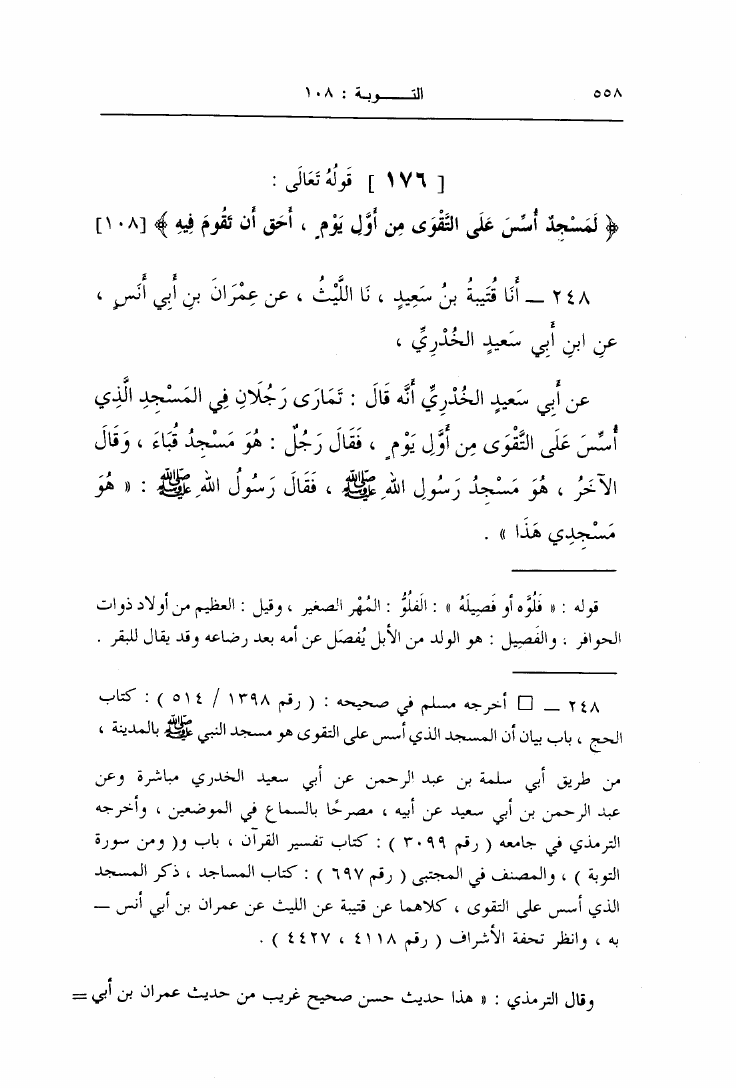 ٥٥٨ التـــوبة : ١٠٨
[ ١٧٦ ] قَولُهُ تَعَالَى :
﴿ لَمَسْجِدٌ أُسِّسَ عَلَى التَّقْوَى مِن أَوَّلِ يَوْمٍ ، أَحَق أَن تَقُومَ فِيهِ ﴾ [١٠٨]
٢٤٨ ــ أَنَا قُتَيبةُ بنُ سَعِيدٍ ، نَا اللَّيْثُ ، عن عِمْرَانَ بنِ أَبِي أَنَسٍ ،
عنِ ابنِ أَبِي سَعيدٍ الخُدْرِيِّ ،
عن أَبِي سَعيدٍ الخُدْرِيِّ أَنَّه قَالَ : تَمَارَى رَجُلَانِ فِي المَسْجِدِ الَّذِي
أُسِّسَ عَلَى التَّقْوَى مِن أَوَّلِ يَوْمٍ ، فَقَالَ رَجُلٌ : هُوَ مَسْجِدُ قُبَاءَ ، وَقَالَ
الآخَرُ ، هُوَ مَسْجِدُ رَسُولِ اللهِ ﷺ ، فَقَالَ رَسُولُ اللهِ ﷺ : « هُوَ
مَسْجِدِي هَذَا » .
قوله : « فَلُوَّه أو فَصِيلَهُ » : الفَلُوُّ : المُهْر الصغير ، وقيل : العظيم من أولاد ذوات
الحوافر ، والفَصِيل : هو الولد من الأبل يُفصَل عن أمه بعد رضاعه وقد يقال للبقر .
٢٤٨ ــ □ أخرجه مسلم في صحيحه : ( رقم ١٣٩٨ / ٥١٤ ) : كتاب
الحج ، باب بيان أن المسجد الذي أسس على التقوى هو مسجد النبي ﷺ بالمدينة ،
من طريق أبي سلمة بن عبد الرحمن عن أبي سعيد الخدري مباشرة وعن
عبد الرحمن بن أبي سعيد عن أبيه ، مصرحًا بالسماع في الموضعين ، وأخرجه
الترمذي في جامعه ( رقم ٣٠٩٩ ) : كتاب تفسير القرآن ، باب و( ومن سورة
التوبة ) ، والمصنف في المجتبى ( رقم ٦٩٧ ) : كتاب المساجد ، ذكر المسجد
الذي أسس على التقوى ، كلاهما عن قتيبة عن الليث عن عمران بن أبي أنس ــ
به ، وانظر تحفة الأشراف ( رقم ٤١١٨ ، ٤٤٢٧ ) .
وقال الترمذي : « هذا حديث حسن صحيح غريب من حديث عمران بن أبي =